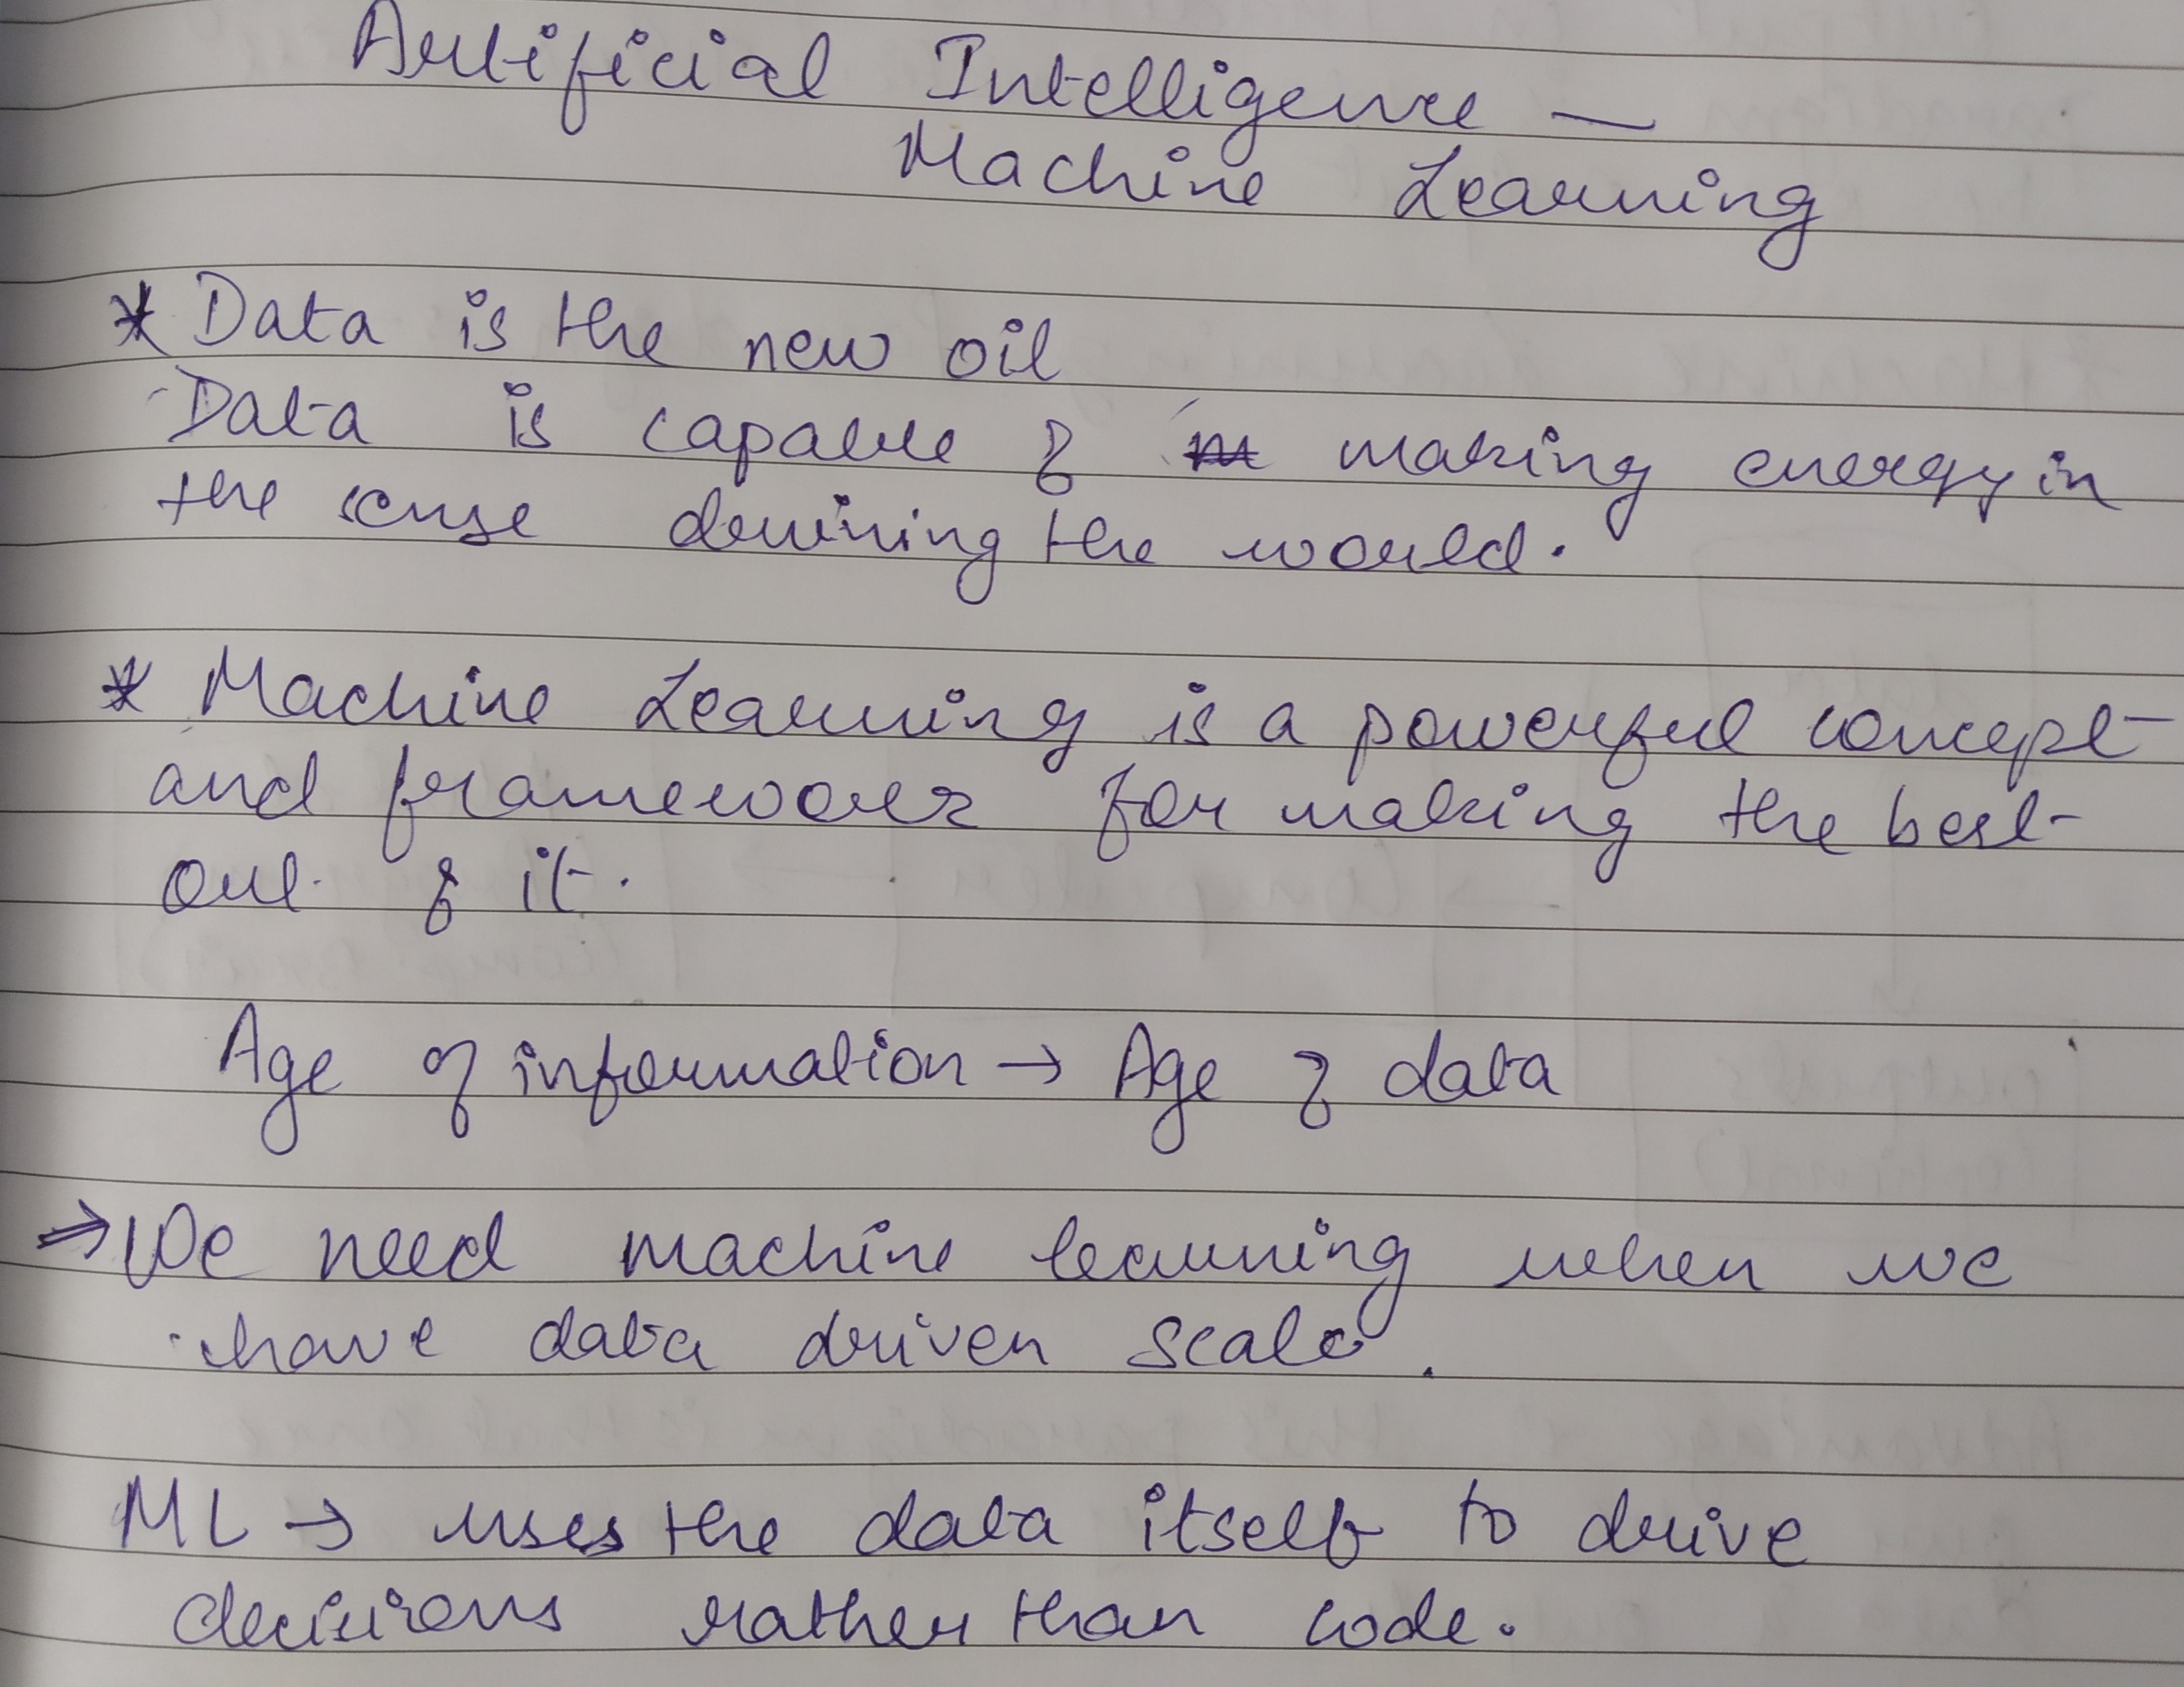 Artificial Intelligence —
Machine Learning
* Data is the new oil
Data is capable of making energy in
the sense driving the world.
* Machine Learning is a powerful concept
and framework for making the best
out of it.
Age of information → Age of data
⇒ We need machine learning when we
have data driven scale.
ML → uses the data itself to drive
decisions rather than code.